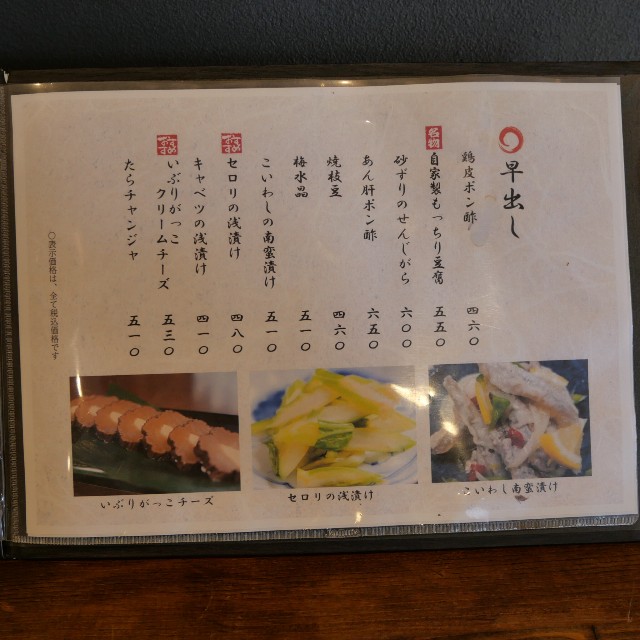 早出し
鶏皮ポン酢 四六〇
名物
自家製もっちり豆腐 五五〇
砂ずりのせんじがら 六〇〇
あん肝ポン酢 六五〇
焼枝豆 四六〇
梅水晶 五一〇
こいわしの南蛮漬け 五一〇
おすすめ
セロリの浅漬け 四八〇
キャベツの浅漬け 四一〇
おすすめ
いぶりがっこ
クリームチーズ 五三〇
たらチャンジャ 五一〇
〇表示価格は、全て税込価格です
いぶりがっこチーズ
セロリの浅漬け
こいわし南蛮漬け